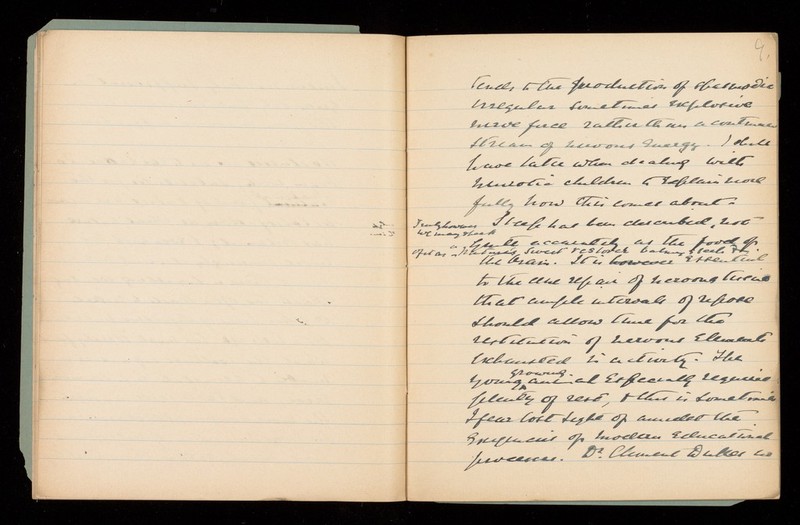 9.
tends to the production of spasmodic
irregular sometimes explosive
nerve force rather than a continuous
stream of nervous energy. I shall
have later when dealing with
neurotic children to explain more
fully how this comes about.
Sleep has been described, not
Truly however
we may speak
quite accurately as the food of
of it as "Nature's sweet restorer balmy sleep"
the brain. It is however essential
to the due repair of nervous tissue
that ample intervals of repose
should allow time for the
restitution of nervous elements
exhausted in activity. The
growing
young animal especially requires
plenty of rest, & this is sometimes
I fear lost sight of amidst the
exigencies of modern educational
processes. Dr. Clement Dukes